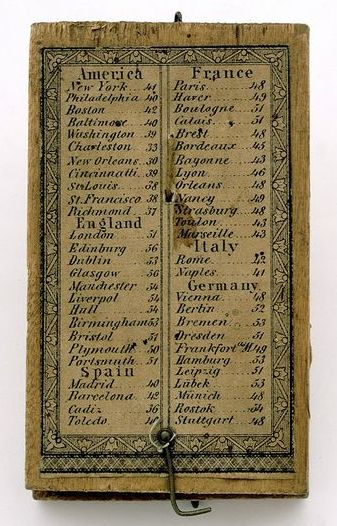 America
New York 41
Philadelphia 40
Boston 42
Baltimore 40
Washington 39
Charleston 33
New Orleans 30
Cincinnatti 39
St Louis 38
St. Francisco 38
Richmond 37
England
London 51
Edinburg 56
Dublin 53
Glasgow 56
Manchester 54
Liverpol 54
Hull 54
Birmingham 53
Bristol 51
Plymouth 50
Portsmuth 51
Spain
Madrid 40
Barcelona 42
Cadiz 36
Toledo
France
Paris 48
Haver 49
Boulogne 51
Calais 51
Brest 48
Bordeaux 45
Bagonne 43
Lyon 46
Orleans 48
Nancy 49
Strasburg 48
Toulon 43
Marseille 43
Italy
Rome 42
Naples 41
Germany
Vienna 48
Bertin 52
Bremen 53
Dresden 51
Frankfort a/M 49
Hamburg 53
Leipzig 51
Lübek 53
Münich 48
Rostok 54
Stuttgart 48